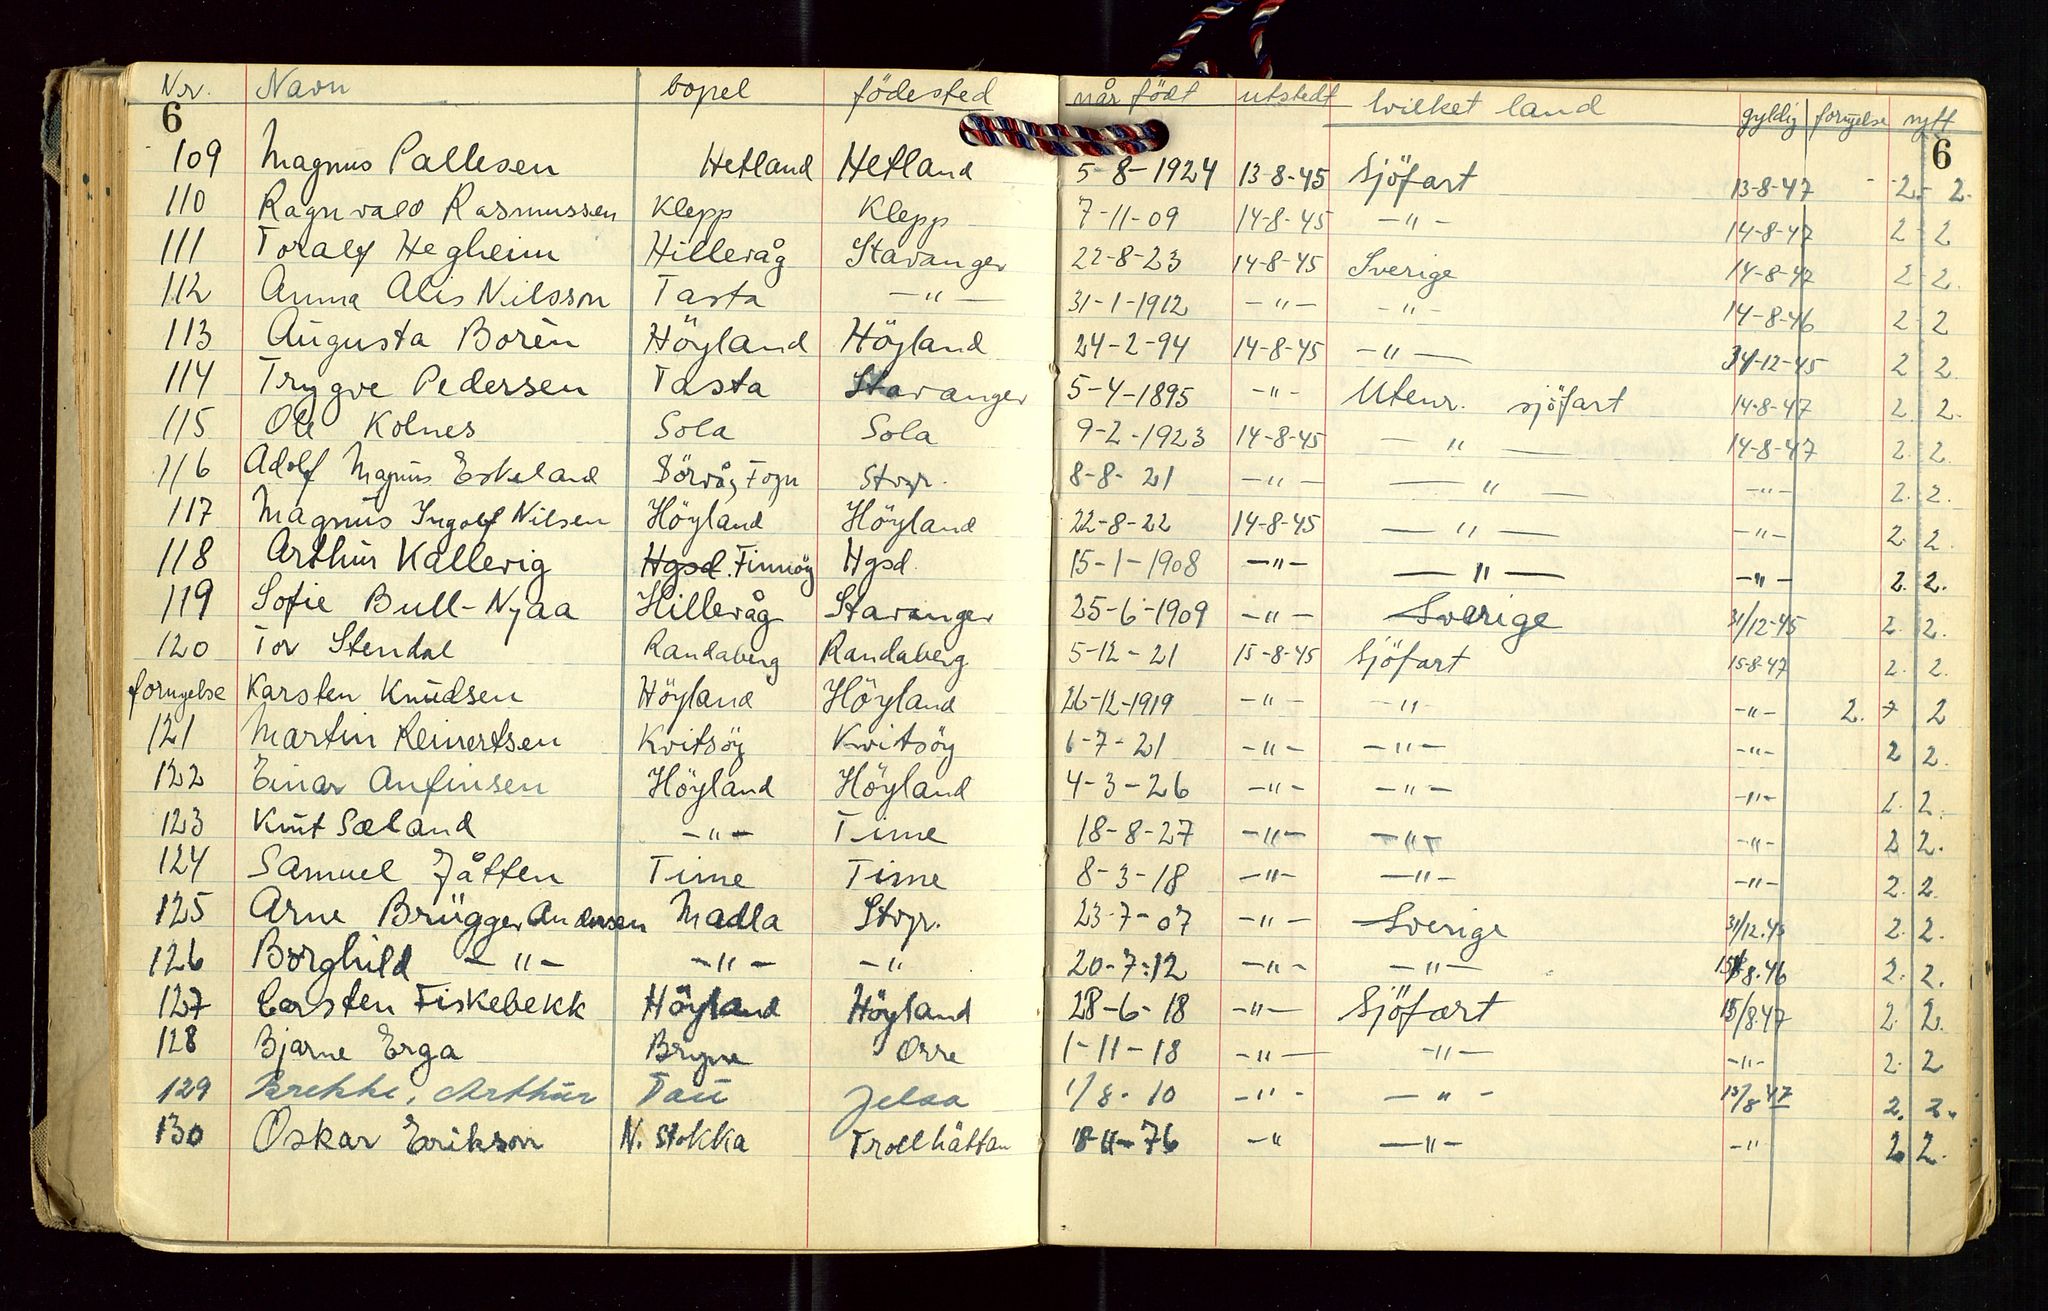 Nr. Navn bopel födested når födt utstedt hvilket land gyldig fornyelse nytt
6 6
109 Magnus Pallesen Hetland Hetland 5-8-1924 13-8-45 Sjöfart 13-8-47 2. 2.
110 Ragnvald Rasmussen Klepp Klepp 7-11-09 14-8-45 -"- 14-8-47 2 2
111 Toralf Hegheim Hillevåg Stavanger 22-8-23 14-8-45 Sverige 14-8-47 2 2.
112 Anna Alis Nilsson Tasta -"- 31-1-1912 -"- -"- 14-8-46 2 2
113 Augusta Borèn Höyland Höyland 24-2-94 14-8-45 -"- 31-12-45 2 2
114 Trygve Pedersen Tasta Stavanger 5-4-1895 -"- Utenr. sjöfart 14-8-47 2. 2.
115 Ole Kolnes Sola Sola 9-2-1923 14-8-45 -"- 14-8-47 2. 2.
116 Adolf Magnus Eskeland Sörvåg Fogn Stvgr. 8-8-21 -"- -"- -"- 2. 2.
117 Magnus Ingolf Nilsen Höyland Höyland 22-8-22 14-8-45 -"- -"- 2. 2.
118 Arthur Kallevig Hgsd. Finnöy Hgsd. 15-1-1908 -"- -"- -"- 2. 2.
119 Sofie Bull-Nyaa Hillevåg Stavanger 25-6-1909 -"- Sverige 31/12-45 2. 2.
120 Tor Stendal Randaberg Randaberg 5-12-21 15-8-45 Sjöfart 15-8-47 2. 2.
fornyelse Karsten Knudsen Höyland Höyland 26-12-1919 -"- -"- -"- 2. 2
121 Martin Reinertsen Kvitsöy Kvitsöy 6-7-21 -"- -"- -"- 2 2.
122 Einar Anfinsen Höyland Höyland 4-3-26 -"- -"- -"- 2. 2.
123 Knut Sæland -"- Time 18-8-27 -"- -"- -"- 2 2.
124 Samuel Jåtten Time Time 8-3-18 -"- -"- -"- 2. 2.
125 Arne Brügger Andersen Madla Stvgr. 23-7-07 -"- Sverige 31/12.45 2. 2.
126 Borghild -"- -"- -" 20-7-12 -"- -"- 15/8.46 2. 2.
127 Carsten Fiskebekk Höyland Höyland 28-6-18 -"- Sjöfart 15/8.47 2. 2.
128 Bjarne Erga Bryne Orre 1-11-18 -"- -"- -"- 2. 2
129 Brekke, Arthur Tau Jelsa 1/8-10 -"- -"- 15/8 47 2. 2.
130 Oskar Erikson N. Stokka Trollhättan 18-11-76 -" -"- -" 2 2.